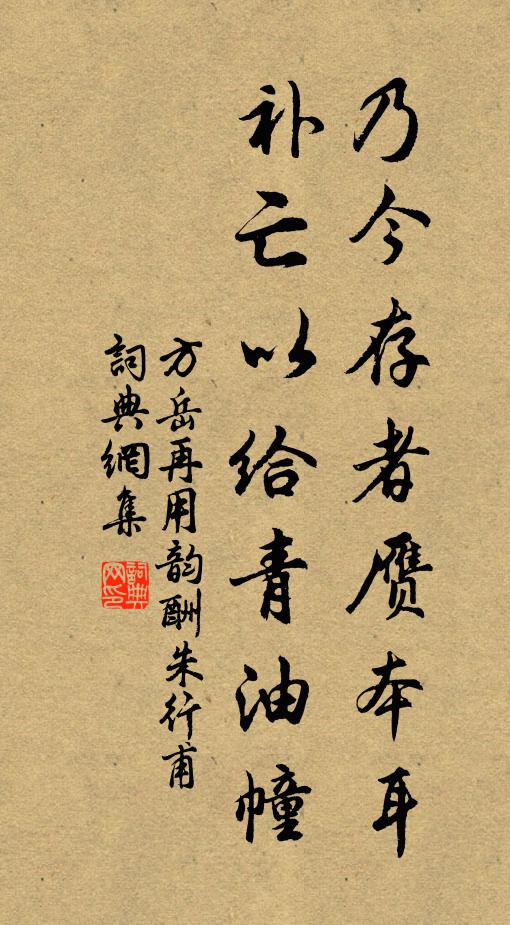 乃今存者赝本耳
补亡以给青油幢
方岳再用韵酬朱行甫
詞典網集
詞典网印